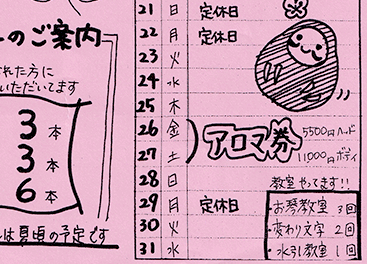 ーのご案内
された方に
いただいてます
3本
3本
6本
は夏頃の予定です
21 日 定休日
22 月 定休日
23 火
24 水
25 木
26 金
27 土
アロマ券 5500円ヘッド
11000円ボディ
28 日
29 月 定休日
30 火
31 水
教室やってます!!
・お琴教室 3回
・変わり文字 2回
・水引教室 1回